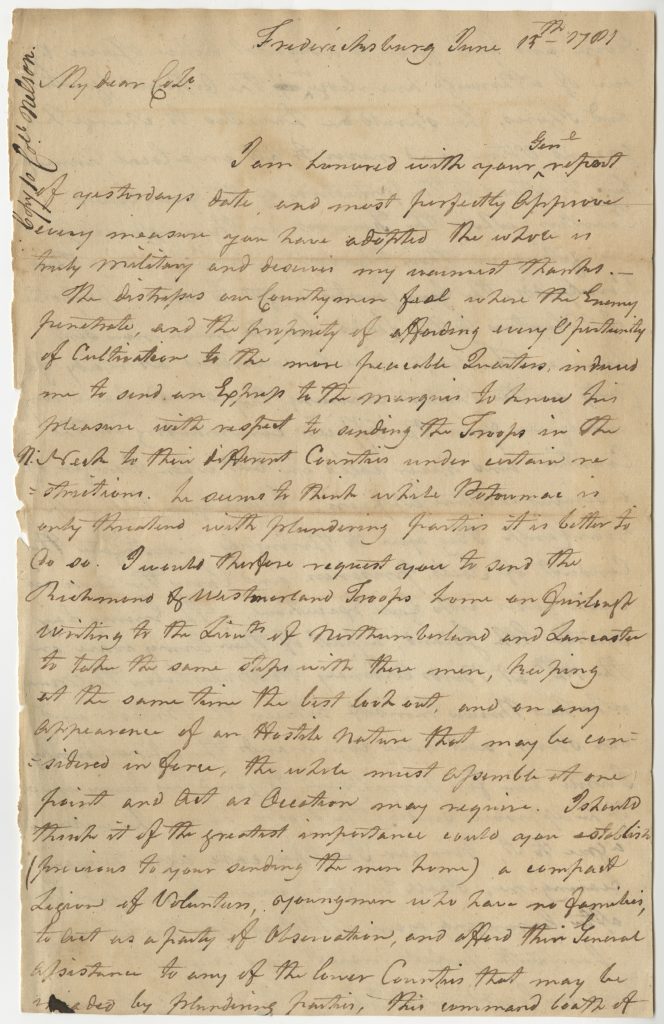 Fredericksburg June 15th 1781
Copy to Coll. Nelson.
My dear Colo.
I am honored with your Genl report
of yesterdays date, and most perfectly Approve
every measure you have adopted the whole is
truly military and deserves my warmest thanks. —
The distresses our Countrymen feel where the Enemy
penetrate, and the propriety of affording every Oportunity
of Cultivation to the more peacable Quarters, induced
me to send an Express to the marquis to know his
pleasure with respect to sending the Troops in the
N: Neck to their different Counties under certain re
=strictions. he seems to think while Potowmac is
only threatend with plundering parties it is better to
do so. I would therefore request you to send the
Richmond & Westmorland Troops home on furlough
writing to the Lieuts of Northumberland and Lancaster
to take the same steps with there men, keeping
at the same time the best look out, and on any
appearence of an Hostile nature that may be con=
=sidered in force, the whole must assemble at one
point and Act as Occation may require. I should
think it of the greatest importance could you establish
(previous to your sending the men home) a compact
Legion of Volunteers, young men who have no families,
to Act as a party of Observation, and afford their General
assistance to any of the lower Counties that may be
invaded by plundering parties, this command boath of